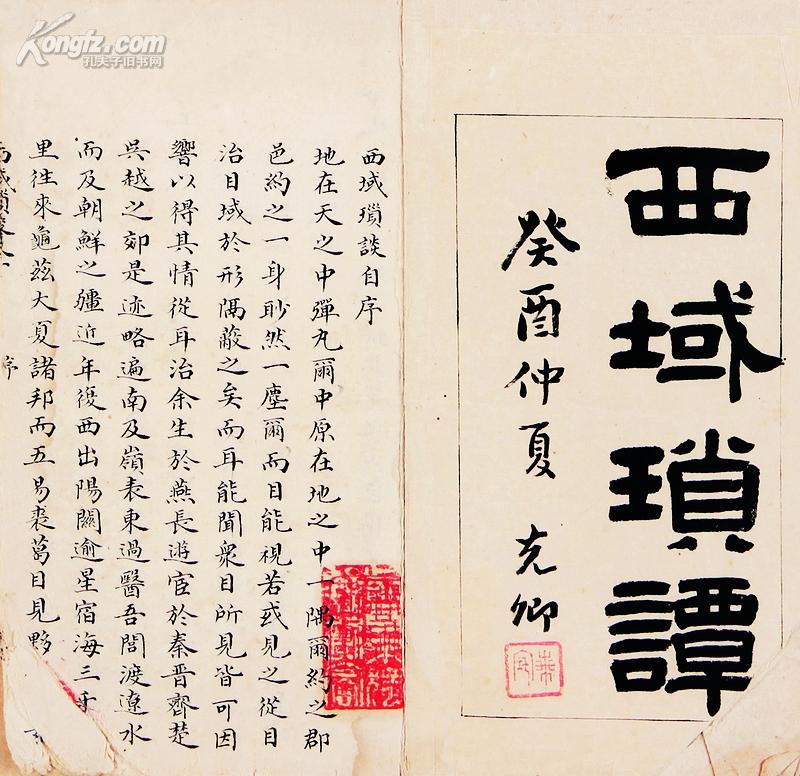 西域瑣譚
癸酉仲夏 克卿
西域瑣談自序
地在天之中彈丸爾中原在地之中一隅爾約之郡
邑約之一身眇然一塵爾而目能視若或見之從目
治目域於形隅蔽之矣而耳能聞衆目所見皆可因
響以得其情從耳治余生於燕長遊宦於秦晉齊楚
吳越之郊是迹略遍南及嶺表東過醫吾閭渡遼水
而及朝鮮之疆近年復西出陽關逾星宿海三千
里往來龜茲大夏諸邦而五易裘葛目見夥
序
Kongfz.com
孔夫子旧书网